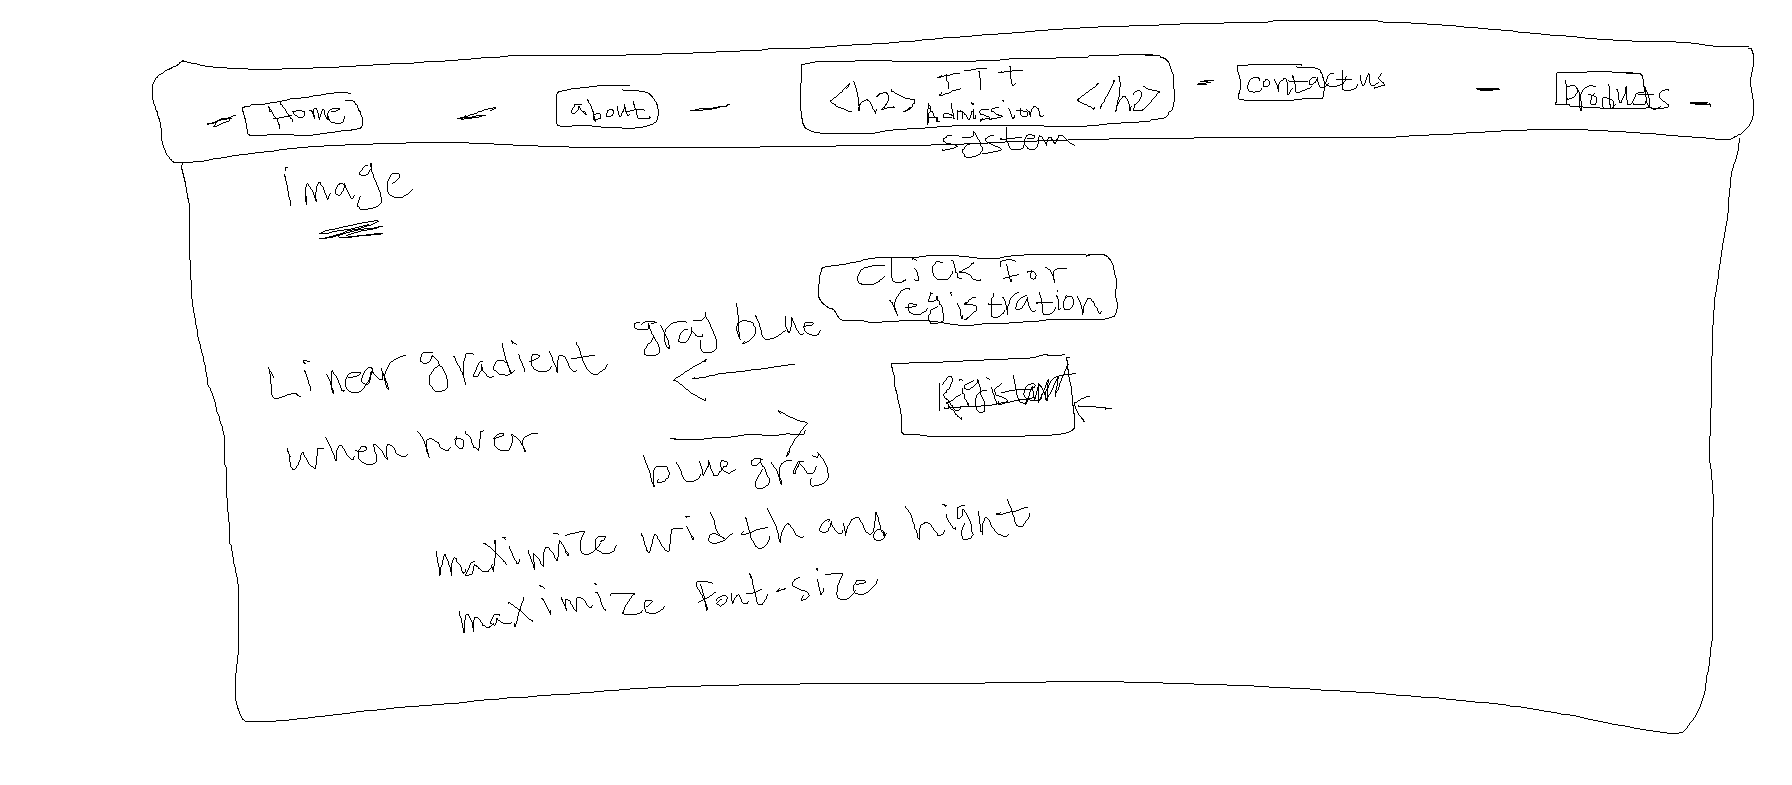 Home
about
<h2> ITt </h2>
Admission
system
contactus
products
image
click for
registration
gray blue
Linear gradient
when hover
blue gray
maximize width and hight
maximize font-size